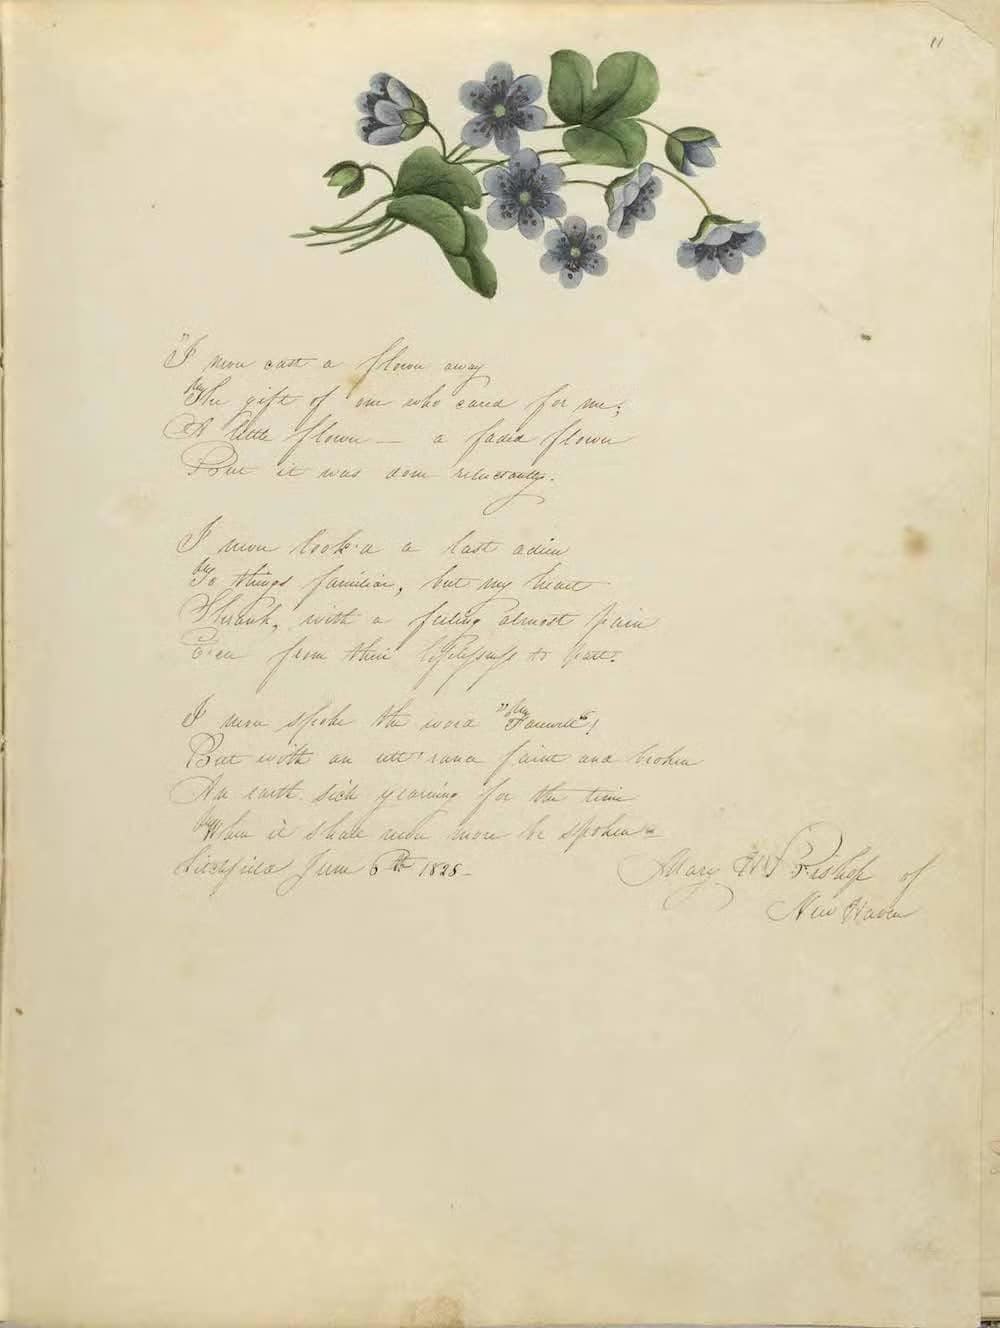 11
"I never cast a flower away
The gift of one who cared for me;
A little flower — a faded flower
But it was done reluctantly.
I never look'd a last adieu
To things familiar, but my heart
Shrank, with a feeling almost pain
E'en from their lifelessness to part.
I never spoke the word "Farewell"!
But with an utt'rance faint and broken
An earth-sick yearning for the time
When it shall never more be spoken"
Litchfield June 6th 1828-
Mary W Bishop of
New Haven